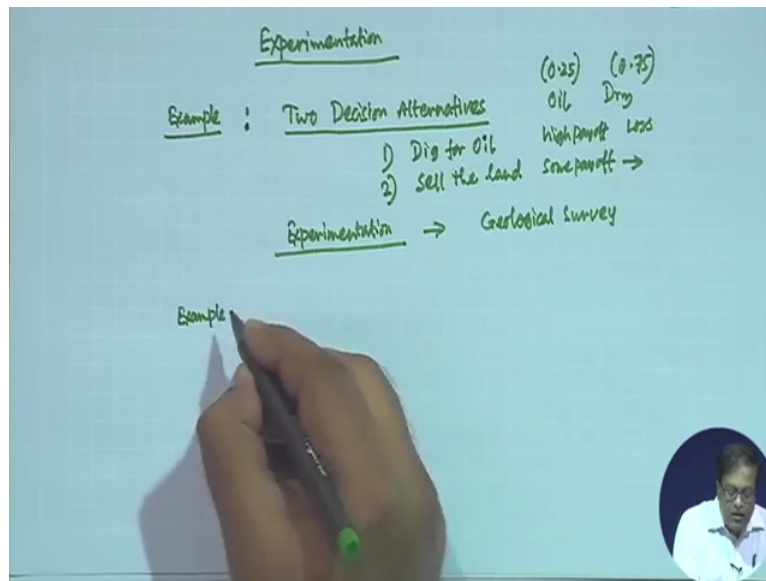 Experimentation
(0.25) (0.75)
Oil Dry
Example : Two Decision Alternatives
1) Dig for Oil high payoff Loss
2) Sell the land some payoff →
Experimentation → Geological Survey
Example